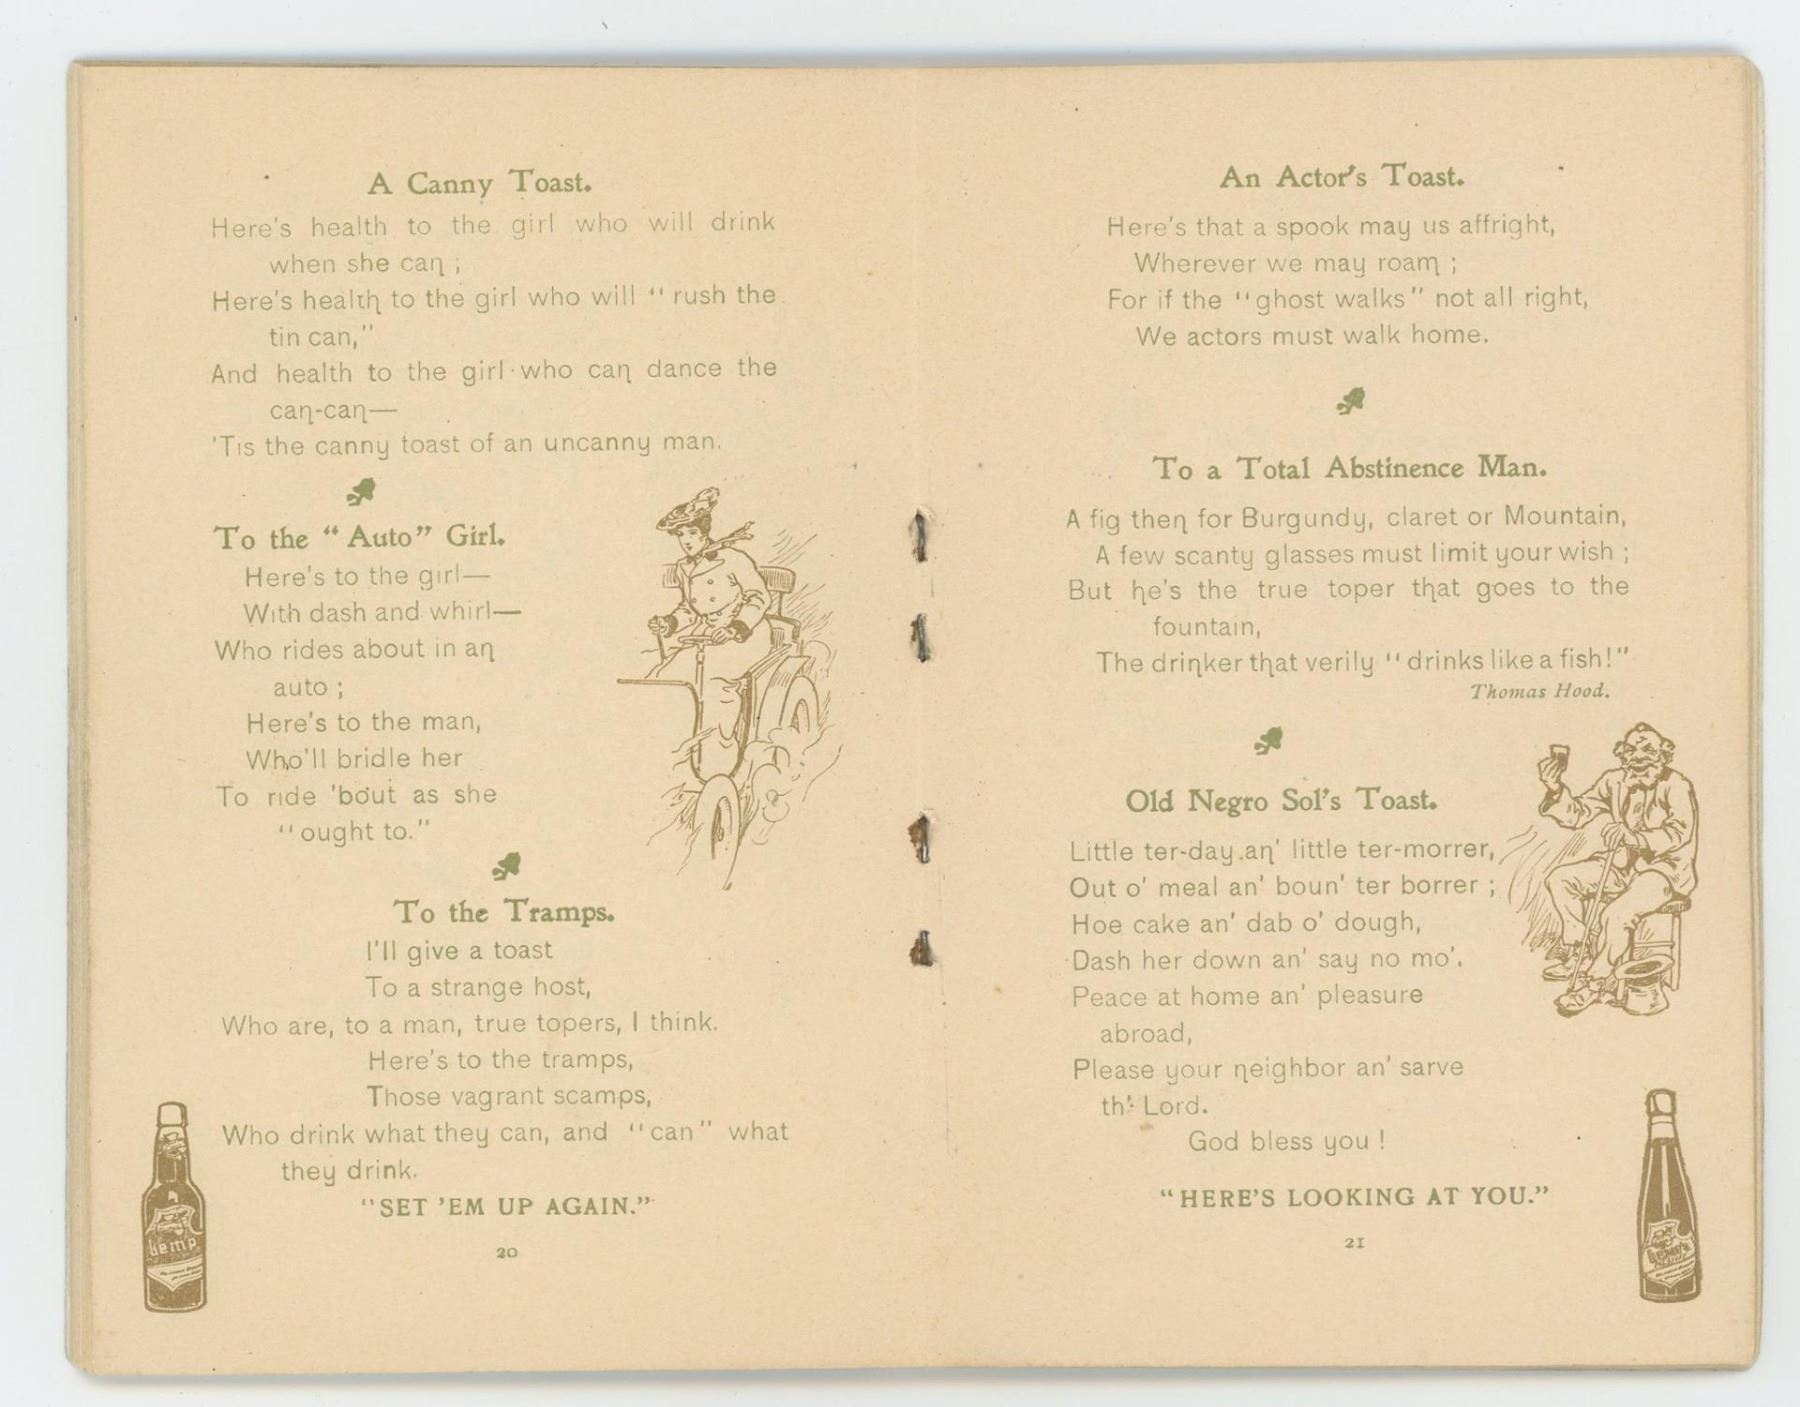 A Canny Toast.
Here's health to the girl who will drink
when she can ;
Here's health to the girl who will "rush the
tin can,"
And health to the girl who can dance the
can-can—
'Tis the canny toast of an uncanny man.
To the "Auto" Girl.
Here's to the girl—
With dash and whirl—
Who rides about in an
auto ;
Here's to the man,
Who'll bridle her
To ride 'bout as she
"ought to."
To the Tramps.
I'll give a toast
To a strange host,
Who are, to a man, true topers, I think.
Here's to the tramps,
Those vagrant scamps,
Who drink what they can, and "can" what
they drink.
"SET 'EM UP AGAIN."
20
Lemp
An Actor's Toast.
Here's that a spook may us affright,
Wherever we may roam ;
For if the "ghost walks" not all right,
We actors must walk home.
To a Total Abstinence Man.
A fig then for Burgundy, claret or Mountain,
A few scanty glasses must limit your wish ;
But he's the true toper that goes to the
fountain,
The drinker that verily "drinks like a fish!"
Thomas Hood.
Old Negro Sol's Toast.
Little ter-day an' little ter-morrer,
Out o' meal an' boun' ter borrer ;
Hoe cake an' dab o' dough,
Dash her down an' say no mo'.
Peace at home an' pleasure
abroad,
Please your neighbor an' sarve
th' Lord.
God bless you !
"HERE'S LOOKING AT YOU."
21